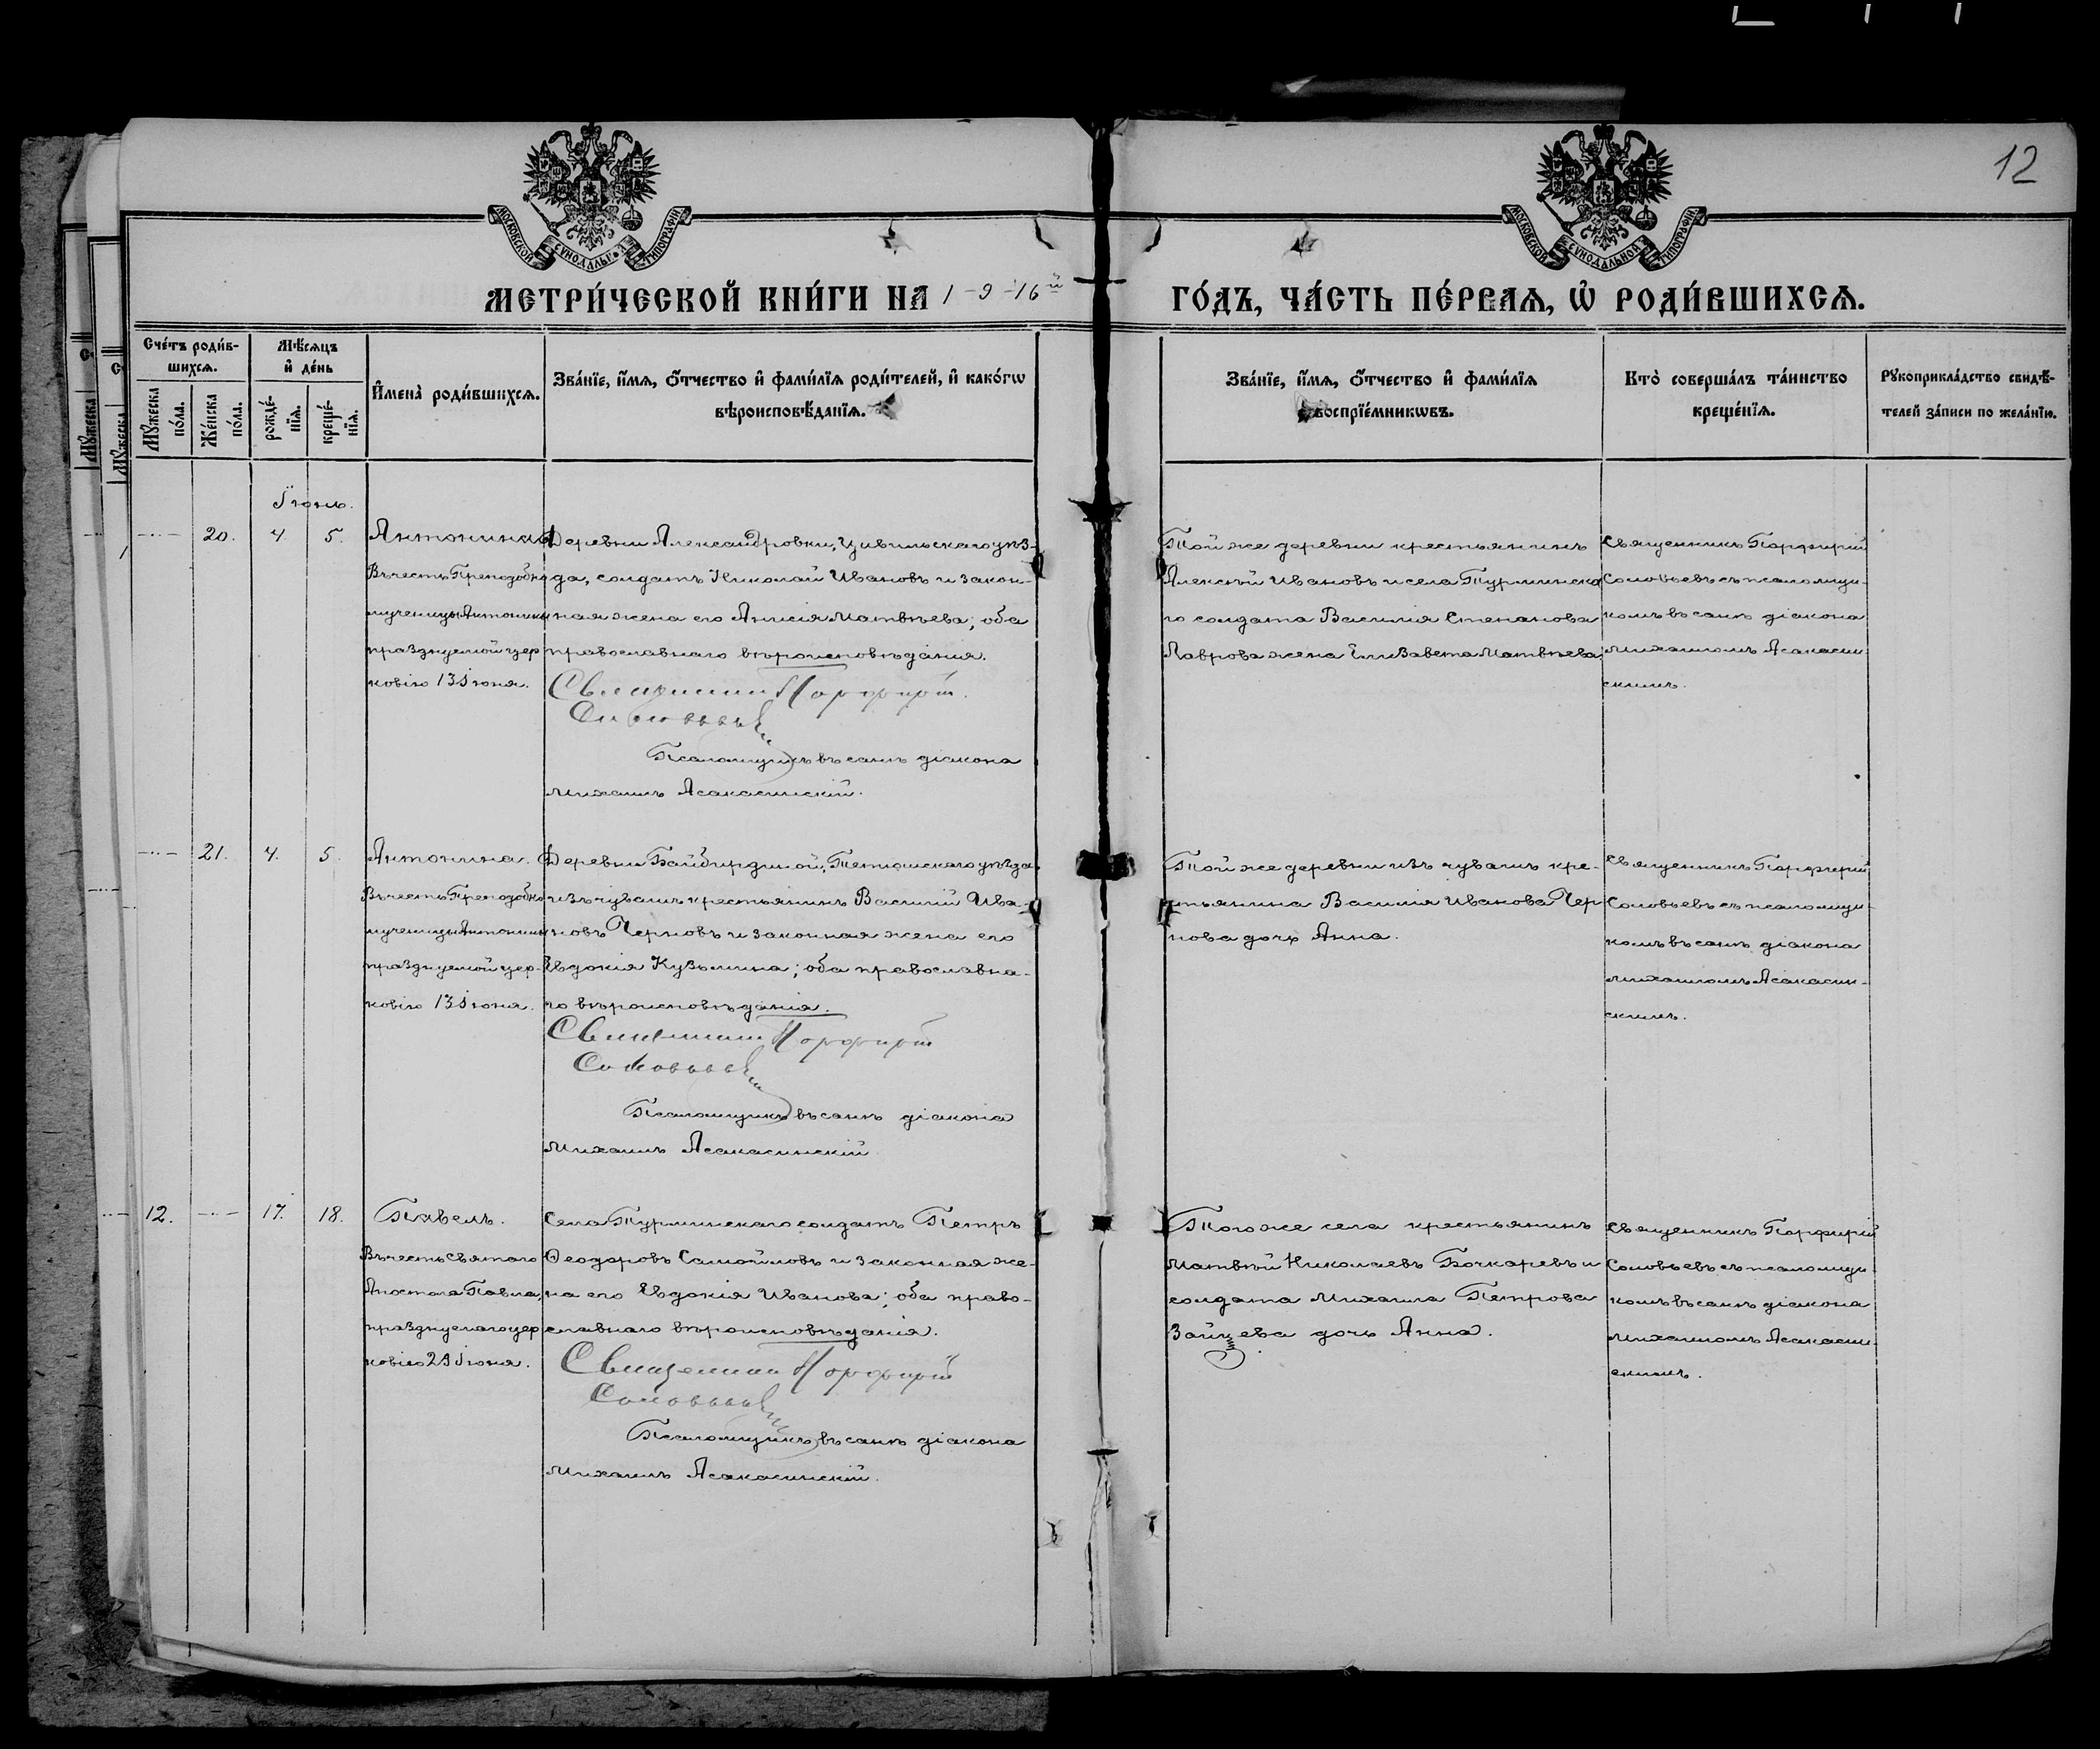 12
МОСКОВСКОЙ СѴНОДАЛЬНОЙ ТИПОГРАФІИ
МОСКОВСКОЙ СѴНОДАЛЬНОЙ ТИПОГРАФІИ
МЕТРИ́ЧЕСКОЙ КНИ́ГИ НА 1-9-16й ГО́ДЪ, ЧА́СТЬ ПЕ́РВАЯ, Ѽ РОДИ́ВШИХСЯ.
Сче́тъ роди́в-
шихся.
Мꙋжеска по́ла.
Же́нска по́ла.
Мѣ́сяцъ
и҆ де́нь
рожде́-
нїѧ.
креще́-
нїѧ.
И҆мена̀ роди́вшихся.
Зва́нїе, и҆́мя, ѻ҆́тчество и҆ фами́лїя роди́телей, и҆ како́гѡ
вѣроисповѣ́данїя.
Зва́нїе, и҆́мя, ѻ҆́тчество и҆ фами́лїя
воспрїе́мникѡвъ.
Кто̀ соверша́лъ та́инство
креще́нїя.
Рꙋкоприкла́дство свидѣ́-
телей за́писи по жела́нїю.
Іюнь.
20. 4. 5.
Антонина
Въ честь Преподобно
мученицы Антонины
празднуемой цер
ковію 13 Іюня.
Деревни Александровки, Цивильскаго уѣз-
да, солдатъ Николай Ивановъ и закон-
ная жена его Анисія Матвѣева; оба
православнаго вѣроисповѣданія.
Священникъ Порфирій
Соловьевъ
Псаломщикъ въ санѣ діакона
Михаилъ Асакасинскій.
Той же деревни крестьянинъ
Алексѣй Ивановъ и села Турминска
го солдата Василія Степанова
Лаврова жена Елизавета Матвѣева.
Священникъ Порфирій
Соловьевъ съ псаломщи-
комъ въ санѣ діакона
Михаиломъ Асакасин-
скимъ.
21. 4. 5.
Антонина.
Въ честь Преподобно
мученицы Антонины
празднуемой цер-
ковію 13 Іюня.
Деревни Байбирдиной, Тетюшскаго уѣзда
изъ чувашъ крестьянинъ Василій Ива-
новъ Черновъ и законная жена его
Евдокія Кузьмина; оба православна-
го вѣроисповѣданія.
Священникъ Порфирій
Соловьевъ
Псаломщикъ въ санѣ діакона
Михаилъ Асакасинскій
Той же деревни изъ чувашъ кре-
стьянина Василія Иванова Чер
нова дочь Анна.
Священникъ Порфирій
Соловьевъ съ псаломщи-
комъ въ санѣ діакона
Михаиломъ Асакасин-
скимъ.
12. 17. 18.
Павелъ.
Въ честь Святаго
Апостола Павла,
празднуемаго цер
ковію 29 Іюня.
Села Турминскаго солдатъ Петръ
Ѳеодоровъ Самойловъ и законная же-
на его Евдокія Иванова; оба право-
славнаго вѣроисповѣданія.
Священникъ Порфирій
Соловьевъ
Псаломщикъ въ санѣ діакона
Михаилъ Асакасинскій.
Того же села крестьянинъ
Матвѣй Николаевъ Бочкаревъ и
солдата Михаила Петрова
Зайцева дочь Анна.
Священникъ Порфирій
Соловьевъ съ псаломщи
комъ въ санѣ діакона
Михаиломъ Асакасин-
скимъ.